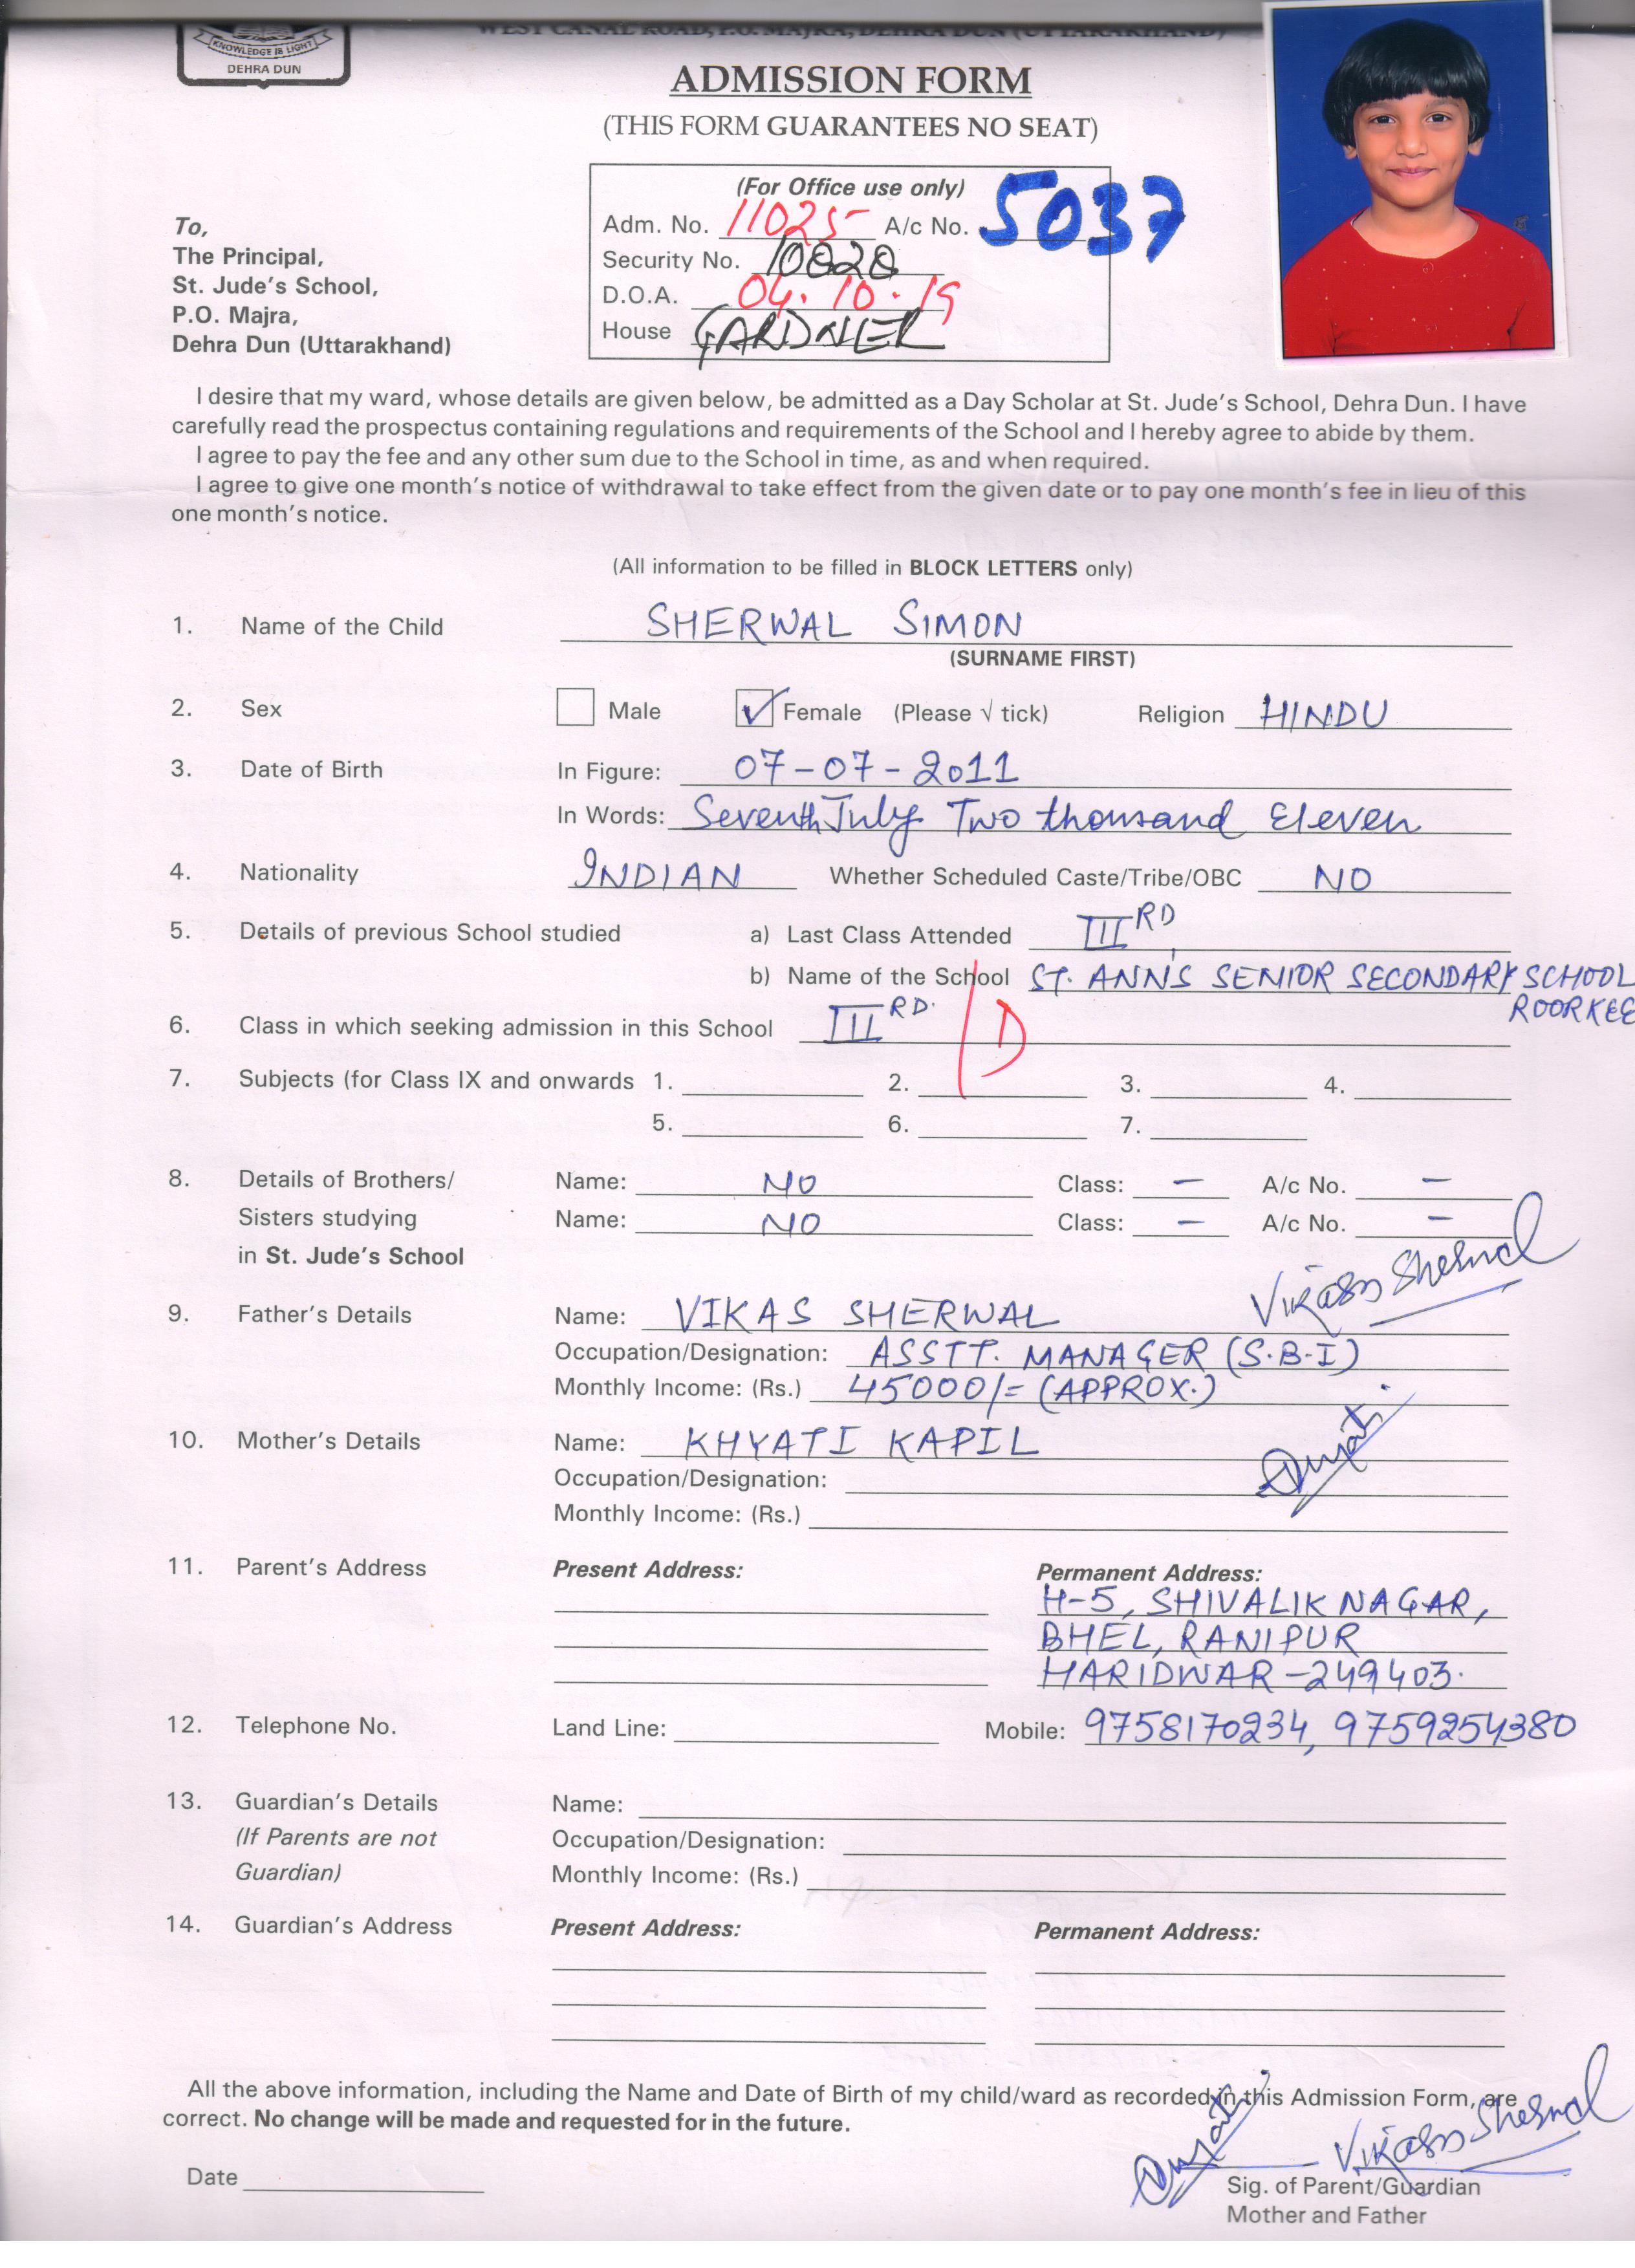 KNOWLEDGE IS LIGHT
DEHRA DUN
WEST CANAL ROAD, P.O. MAJRA, DEHRA DUN (UTTARAKHAND)
ADMISSION FORM
(THIS FORM GUARANTEES NO SEAT)
(For Office use only)
Adm. No. 11025 A/c No. 5037
Security No. 10828
D.O.A. 04.10.19
House GARDNER
To,
The Principal,
St. Jude's School,
P.O. Majra,
Dehra Dun (Uttarakhand)
I desire that my ward, whose details are given below, be admitted as a Day Scholar at St. Jude's School, Dehra Dun. I have
carefully read the prospectus containing regulations and requirements of the School and I hereby agree to abide by them.
I agree to pay the fee and any other sum due to the School in time, as and when required.
I agree to give one month's notice of withdrawal to take effect from the given date or to pay one month's fee in lieu of this
one month's notice.
(All information to be filled in BLOCK LETTERS only)
1. Name of the Child SHERWAL SIMON
(SURNAME FIRST)
2. Sex Male ✓ Female (Please √ tick) Religion HINDU
3. Date of Birth In Figure: 07-07-2011
In Words: Seventh July Two thousand Eleven
4. Nationality INDIAN Whether Scheduled Caste/Tribe/OBC NO
5. Details of previous School studied a) Last Class Attended III RD
b) Name of the School ST. ANN'S SENIOR SECONDARY SCHOOL
ROORKEE
6. Class in which seeking admission in this School III RD. / D
7. Subjects (for Class IX and onwards 1. 2. 3. 4.
5. 6. 7.
8. Details of Brothers/ Name: NO Class: - A/c No. -
Sisters studying Name: NO Class: - A/c No. -
in St. Jude's School
Vikas Sherwal
9. Father's Details Name: VIKAS SHERWAL
Occupation/Designation: ASSTT. MANAGER (S.B.I)
Monthly Income: (Rs.) 45000/= (APPROX.)
10. Mother's Details Name: KHYATI KAPIL
Occupation/Designation:
Monthly Income: (Rs.)
11. Parent's Address Present Address: Permanent Address:
H-5, SHIVALIK NAGAR,
BHEL, RANIPUR
HARIDWAR-249403.
12. Telephone No. Land Line: Mobile: 9758170234, 9759254380
13. Guardian's Details Name:
(If Parents are not Occupation/Designation:
Guardian) Monthly Income: (Rs.)
14. Guardian's Address Present Address: Permanent Address:
All the above information, including the Name and Date of Birth of my child/ward as recorded in this Admission Form, are
correct. No change will be made and requested for in the future.
Vikas Sherwal
Date
Sig. of Parent/Guardian
Mother and Father